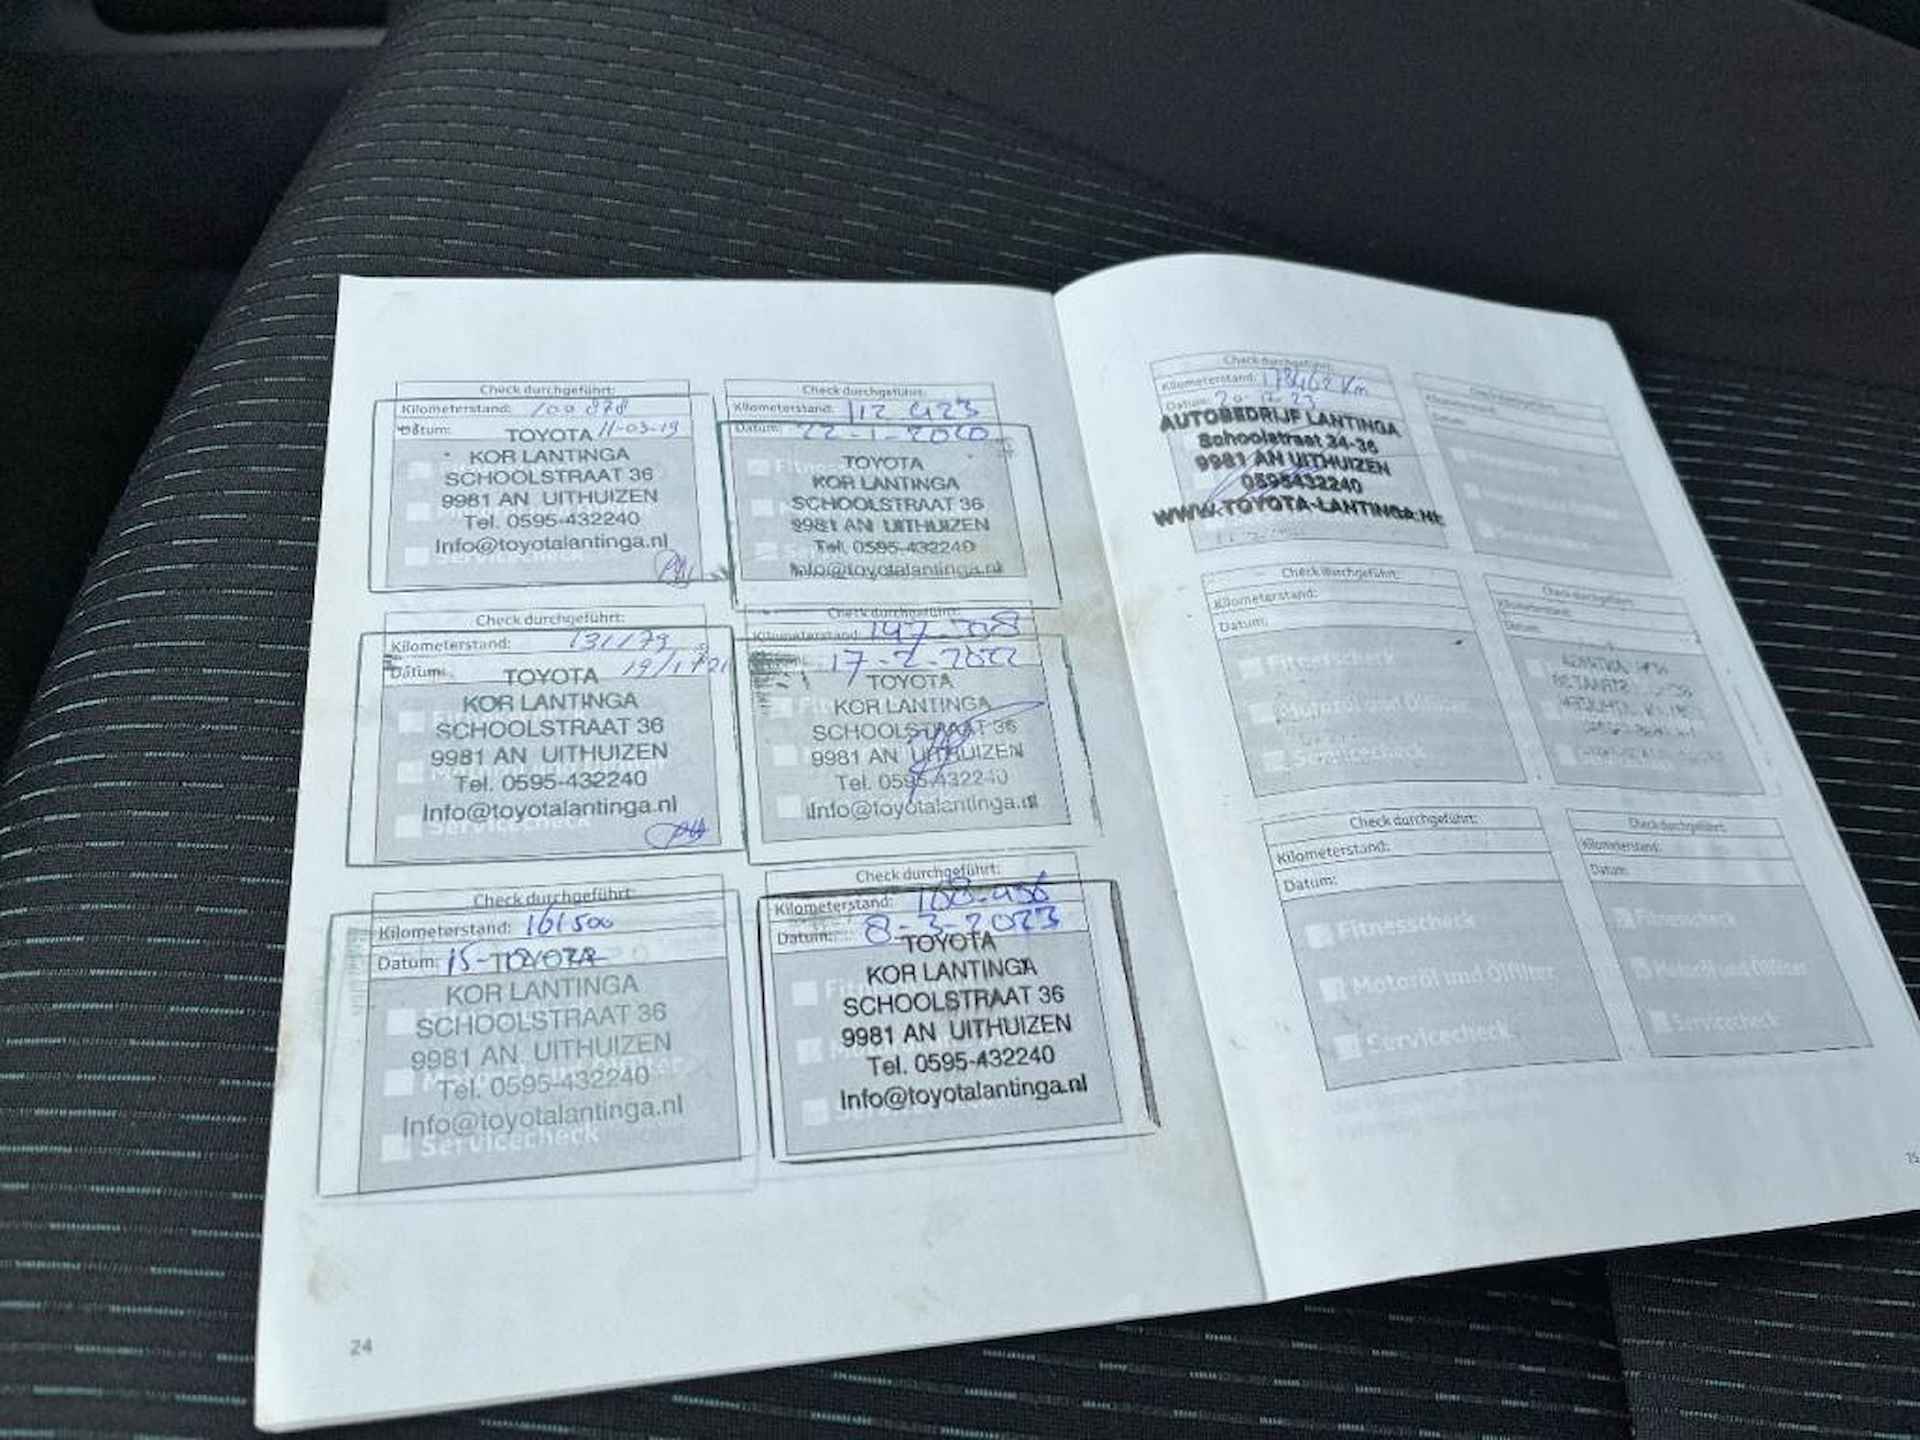 Check durchgeführt:
Kilometerstand: 100 878
Datum: 11-03-19
TOYOTA
KOR LANTINGA
SCHOOLSTRAAT 36
9981 AN UITHUIZEN
Tel. 0595-432240
Info@toyotalantinga.nl
Servicecheck
Check durchgeführt:
Kilometerstand: 112 423
Datum: 22-1-2020
TOYOTA
KOR LANTINGA
SCHOOLSTRAAT 36
9981 AN UITHUIZEN
Tel. 0595-432240
Info@toyotalantinga.nl
Check durchgeführt:
Kilometerstand: 131179
Datum: 19/1/21
TOYOTA
KOR LANTINGA
SCHOOLSTRAAT 36
9981 AN UITHUIZEN
Tel. 0595-432240
Info@toyotalantinga.nl
Servicecheck
Check durchgeführt:
Kilometerstand:
17-2-2022
TOYOTA
KOR LANTINGA
SCHOOLSTRAAT 36
9981 AN UITHUIZEN
Tel. 0595-432240
Info@toyotalantinga.nl
Check durchgeführt:
Kilometerstand: 161500
Datum: 15-
TOYOTA
KOR LANTINGA
SCHOOLSTRAAT 36
9981 AN UITHUIZEN
Tel. 0595-432240
Info@toyotalantinga.nl
Servicecheck
Check durchgeführt:
Kilometerstand:
Datum: 8-3-2023
TOYOTA
KOR LANTINGA
SCHOOLSTRAAT 36
9981 AN UITHUIZEN
Tel. 0595-432240
Info@toyotalantinga.nl
24
Check durchgeführt:
Kilometerstand: 178462 Km
Datum: 20-12-23
AUTOBEDRIJF LANTINGA
Schoolstraat 34-36
9981 AN UITHUIZEN
0595432240
WWW.TOYOTA-LANTINGA.NL
Check durchgeführt:
Kilometerstand:
Datum:
Check durchgeführt:
Kilometerstand:
Datum:
Fitnesscheck
Motoröl und Ölfilter
Servicecheck
Check durchgeführt:
Kilometerstand:
Datum:
Check durchgeführt:
Kilometerstand:
Datum:
Fitnesscheck
Motoröl und Ölfilter
Servicecheck
Check durchgeführt:
Kilometerstand:
Datum:
Fitnesscheck
Motoröl und Ölfilter
Servicecheck